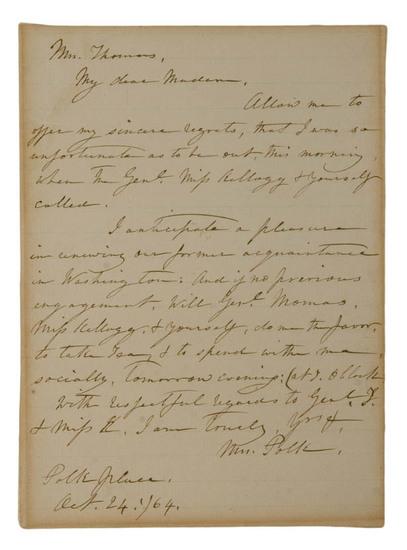 Mrs. Thomas,
My dear Madam,
Allow me to
offer my sincere regrets, that I was so
unfortunate as to be out, this morning,
when the Genl. Miss Kellogg & yourself
called.
I anticipate a pleasure
in renewing our former acquaintance
in Washington: And if no previous
engagement, Will Genl. Thomas,
Miss Kellogg, & yourself, do me the favor,
to take Tea, & to spend with me,
socially, tomorrow evening: (at 7. O Clock
With respectful regards to Genl. T.
& Miss K. I am truely, Yrs &,
Mrs. Polk.
Polk place.
Oct. 24. /64.